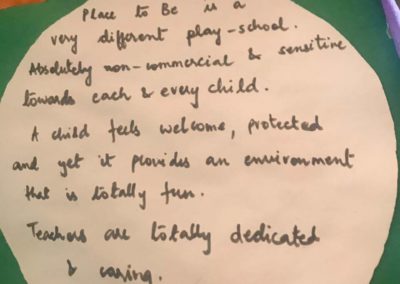 Place to Be is a
very different play-school.
Absolutely non-commercial & sensitive
towards each & every child.
A child feels welcome, protected
and yet it provides an environment
that is totally fun.
Teachers are totally dedicated
& caring.